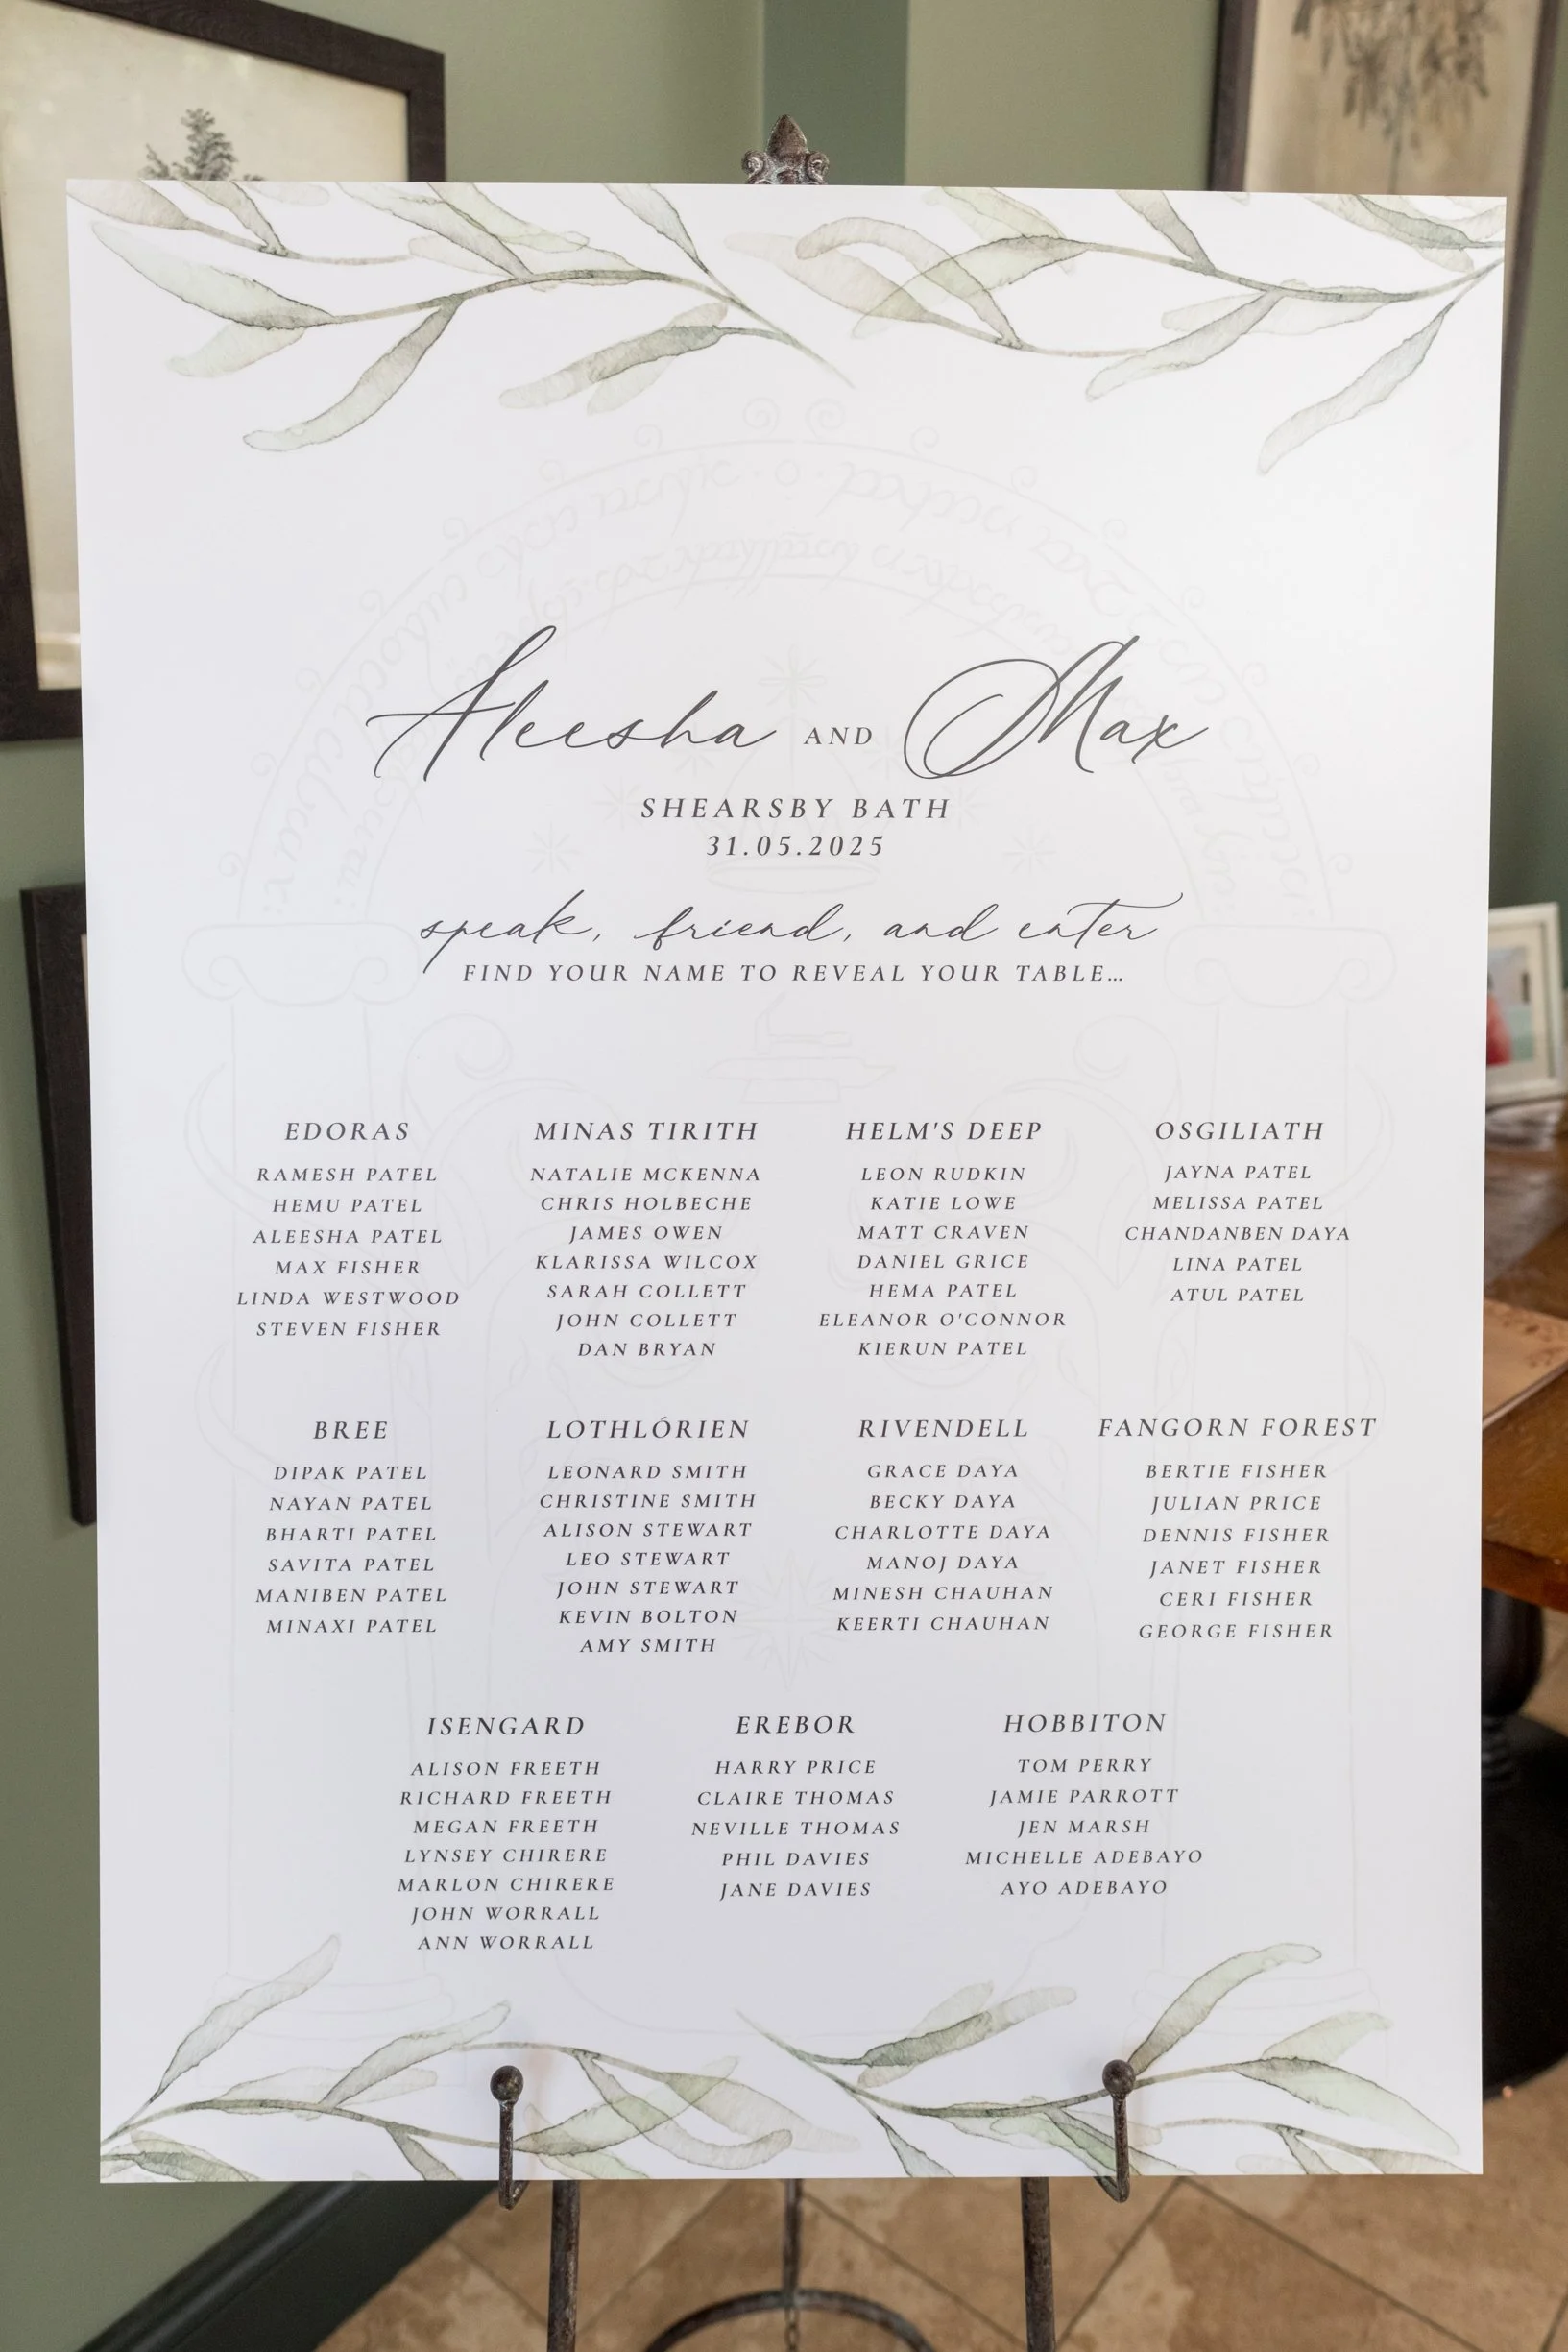 Aleesha AND Max
SHEARSBY BATH
31.05.2025
speak, friend, and enter
FIND YOUR NAME TO REVEAL YOUR TABLE...
EDORAS
RAMESH PATEL
HEMU PATEL
ALEESHA PATEL
MAX FISHER
LINDA WESTWOOD
STEVEN FISHER
MINAS TIRITH
NATALIE MCKENNA
CHRIS HOLBECHE
JAMES OWEN
KLARISSA WILCOX
SARAH COLLETT
JOHN COLLETT
DAN BRYAN
HELM'S DEEP
LEON RUDKIN
KATIE LOWE
MATT CRAVEN
DANIEL GRICE
HEMA PATEL
ELEANOR O'CONNOR
KIERUN PATEL
OSGILIATH
JAYNA PATEL
MELISSA PATEL
CHANDANBEN DAYA
LINA PATEL
ATUL PATEL
BREE
DIPAK PATEL
NAYAN PATEL
BHARTI PATEL
SAVITA PATEL
MANIBEN PATEL
MINAXI PATEL
LOTHLÓRIEN
LEONARD SMITH
CHRISTINE SMITH
ALISON STEWART
LEO STEWART
JOHN STEWART
KEVIN BOLTON
AMY SMITH
RIVENDELL
GRACE DAYA
BECKY DAYA
CHARLOTTE DAYA
MANOJ DAYA
MINESH CHAUHAN
KEERTI CHAUHAN
FANGORN FOREST
BERTIE FISHER
JULIAN PRICE
DENNIS FISHER
JANET FISHER
CERI FISHER
GEORGE FISHER
ISENGARD
ALISON FREETH
RICHARD FREETH
MEGAN FREETH
LYNSEY CHIRERE
MARLON CHIRERE
JOHN WORRALL
ANN WORRALL
EREBOR
HARRY PRICE
CLAIRE THOMAS
NEVILLE THOMAS
PHIL DAVIES
JANE DAVIES
HOBBITON
TOM PERRY
JAMIE PARROTT
JEN MARSH
MICHELLE ADEBAYO
AYO ADEBAYO